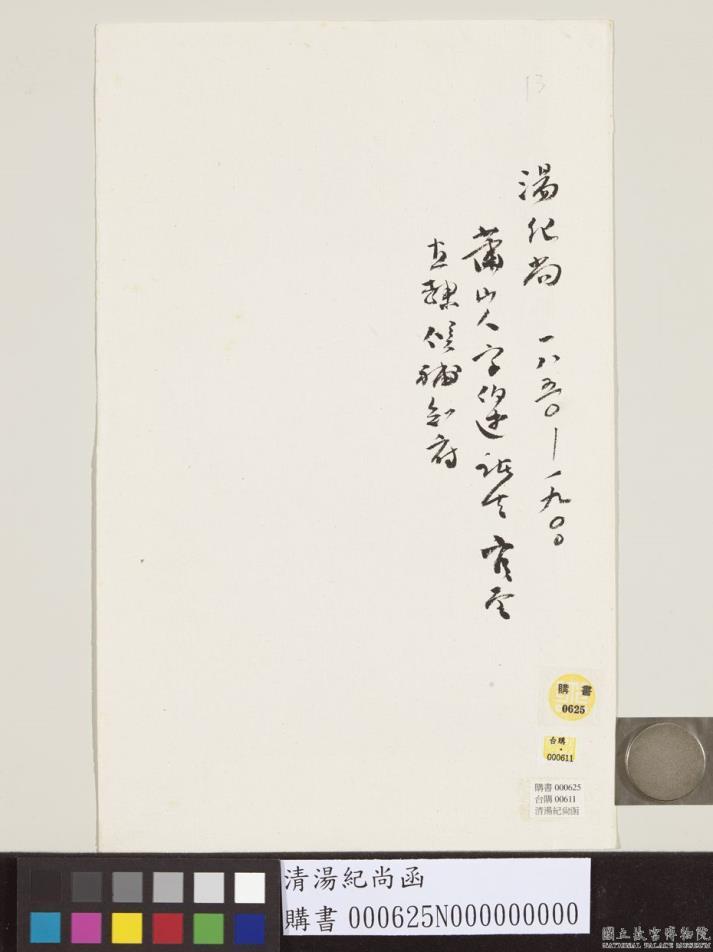 13
湯紀尚 一八五〇—一九〇〇
蕭山人字伯述諸生官至
直隸候補知府
購書
0625
台購
000611
購書 000625
台購 00611
清湯紀尚函
清湯紀尚函
購書 000625N000000000
國立故宮博物院
NATIONAL PALACE MUSEUM